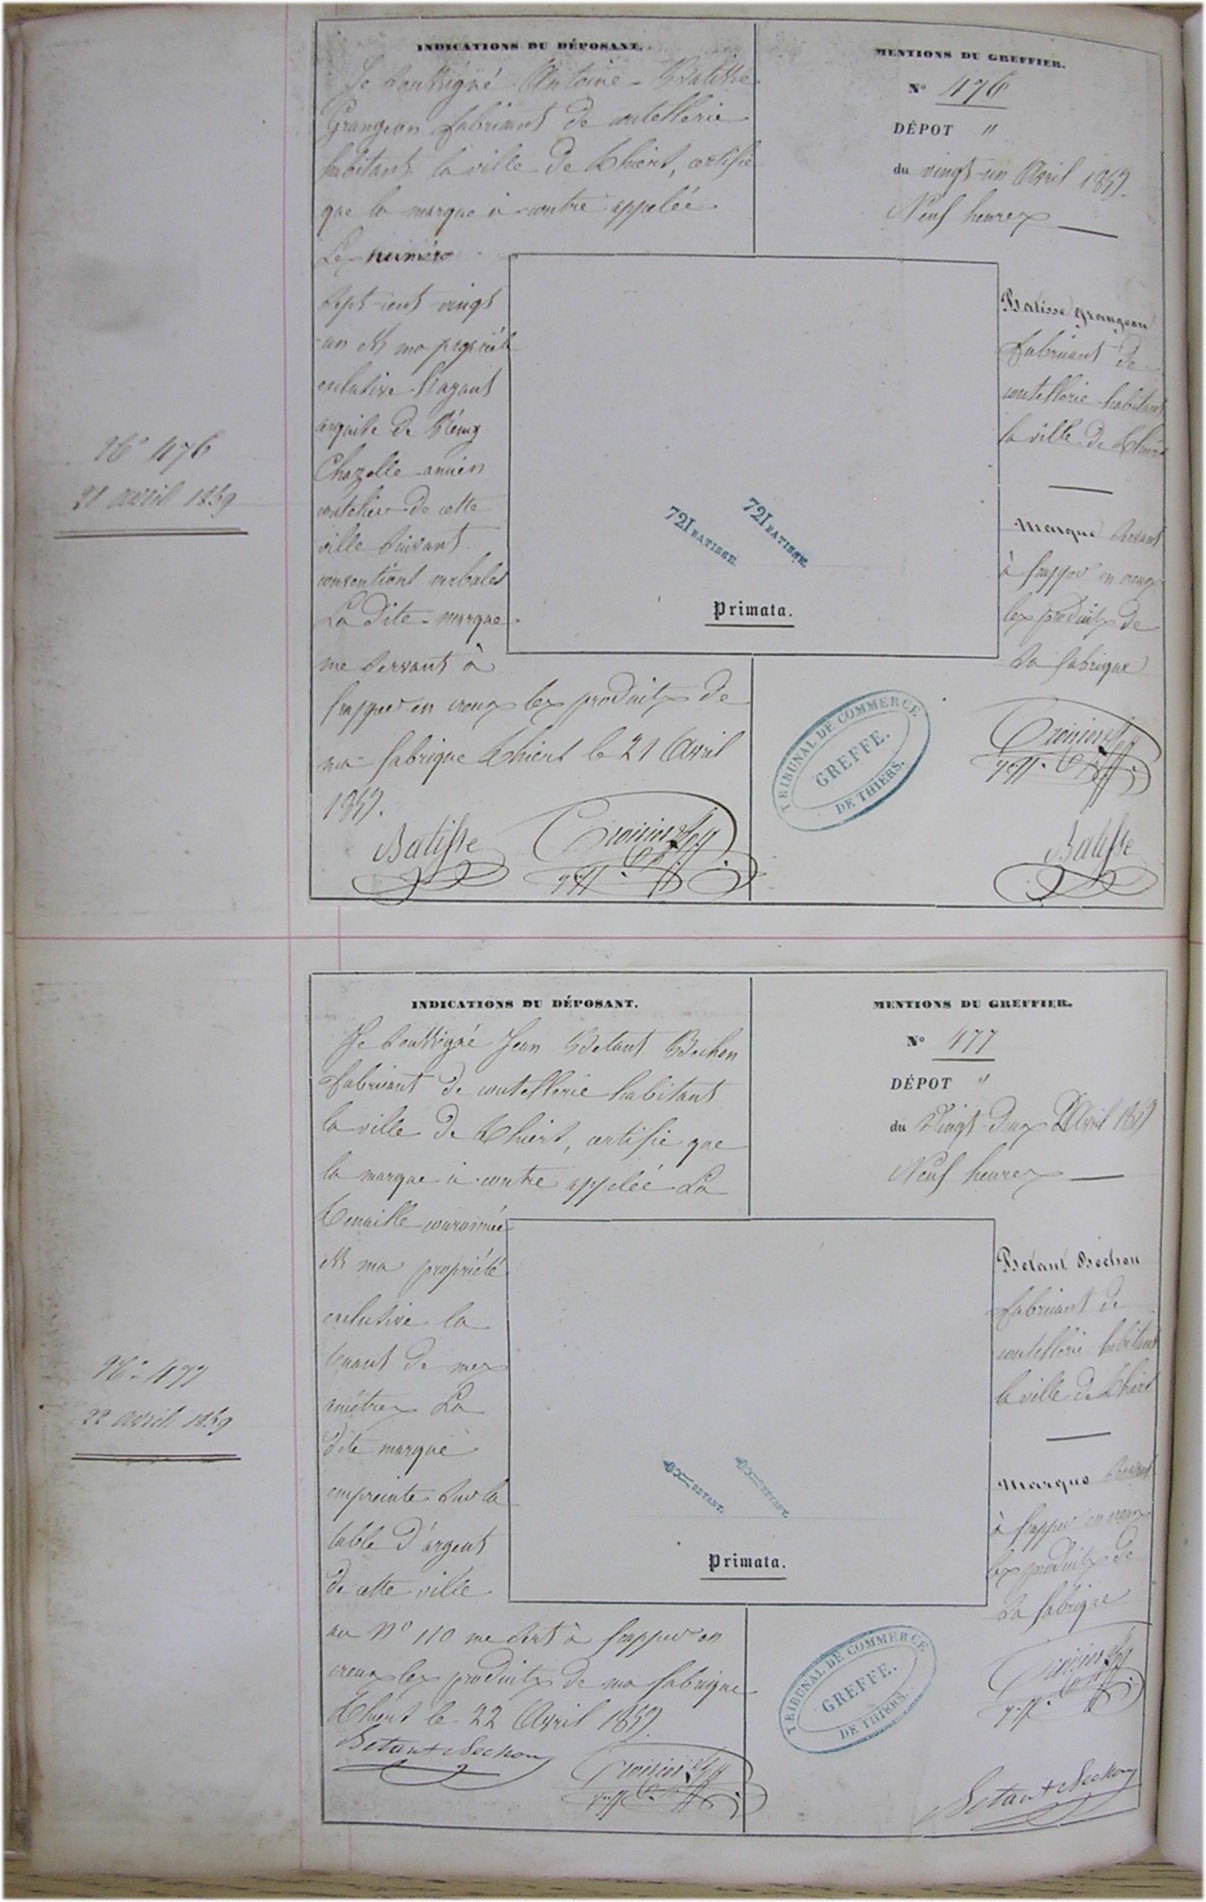 N° 476
21 avril 1859
INDICATIONS DU DÉPOSANT.
Je soussigné Antoine Batisse
Grangeon fabricant de coutellerie
habitant la ville de Thiers, certifie
que la marque ci-contre appelée
Le numéro
Sept cent vingt
un est ma propriété
exclusive l'ayant
acquise de Rémy
Chazelle ancien
coutelier de cette
ville suivant
conventions verbales
La dite marque
me servant à
frapper en creux les produits de
ma fabrique Thiers le 21 Avril
1859.
Batisse
MENTIONS DU GREFFIER.
N° 476
DÉPOT "
du vingt-un Avril 1859.
Neuf heures
Batisse Grangeon
fabricant de
coutellerie habitant
la ville de Thiers
Marque servant
à frapper en creux
les produits de
sa fabrique
721 BATISSE.
721 BATISSE.
Primata.
TRIBUNAL DE COMMERCE
GREFFE.
DE THIERS.
Batisse
N° 477
22 avril 1859
INDICATIONS DU DÉPOSANT.
Je soussigné Jean Betant Bechon
fabricant de coutellerie habitant
la ville de Thiers, certifie que
la marque ci-contre appelée La
Tenaille couronnée
est ma propriété
exclusive la
tenant de mes
ancêtres La
dite marque
empreinte sur la
table d'argent
de cette ville
au N° 110 me sert à frapper en
creux les produits de ma fabrique
Thiers le 22 Avril 1859.
Betant Bechon
MENTIONS DU GREFFIER.
N° 477
DÉPOT "
du Vingt deux Avril 1859
Neuf heures
Betant Bechon
fabricant de
coutellerie habitant
la ville de Thiers
Marque servant
à frapper en creux
les produits de
sa fabrique
BETANT.
BETANT.
Primata.
TRIBUNAL DE COMMERCE
GREFFE.
DE THIERS.
Betant Bechon